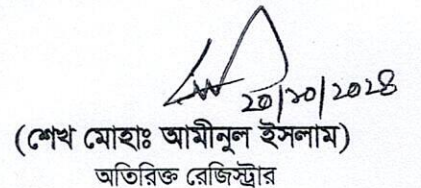 ২০/১০/২০২৪
(শেখ মোহাঃ আমীনুল ইসলাম)
অতিরিক্ত রেজিস্ট্রার